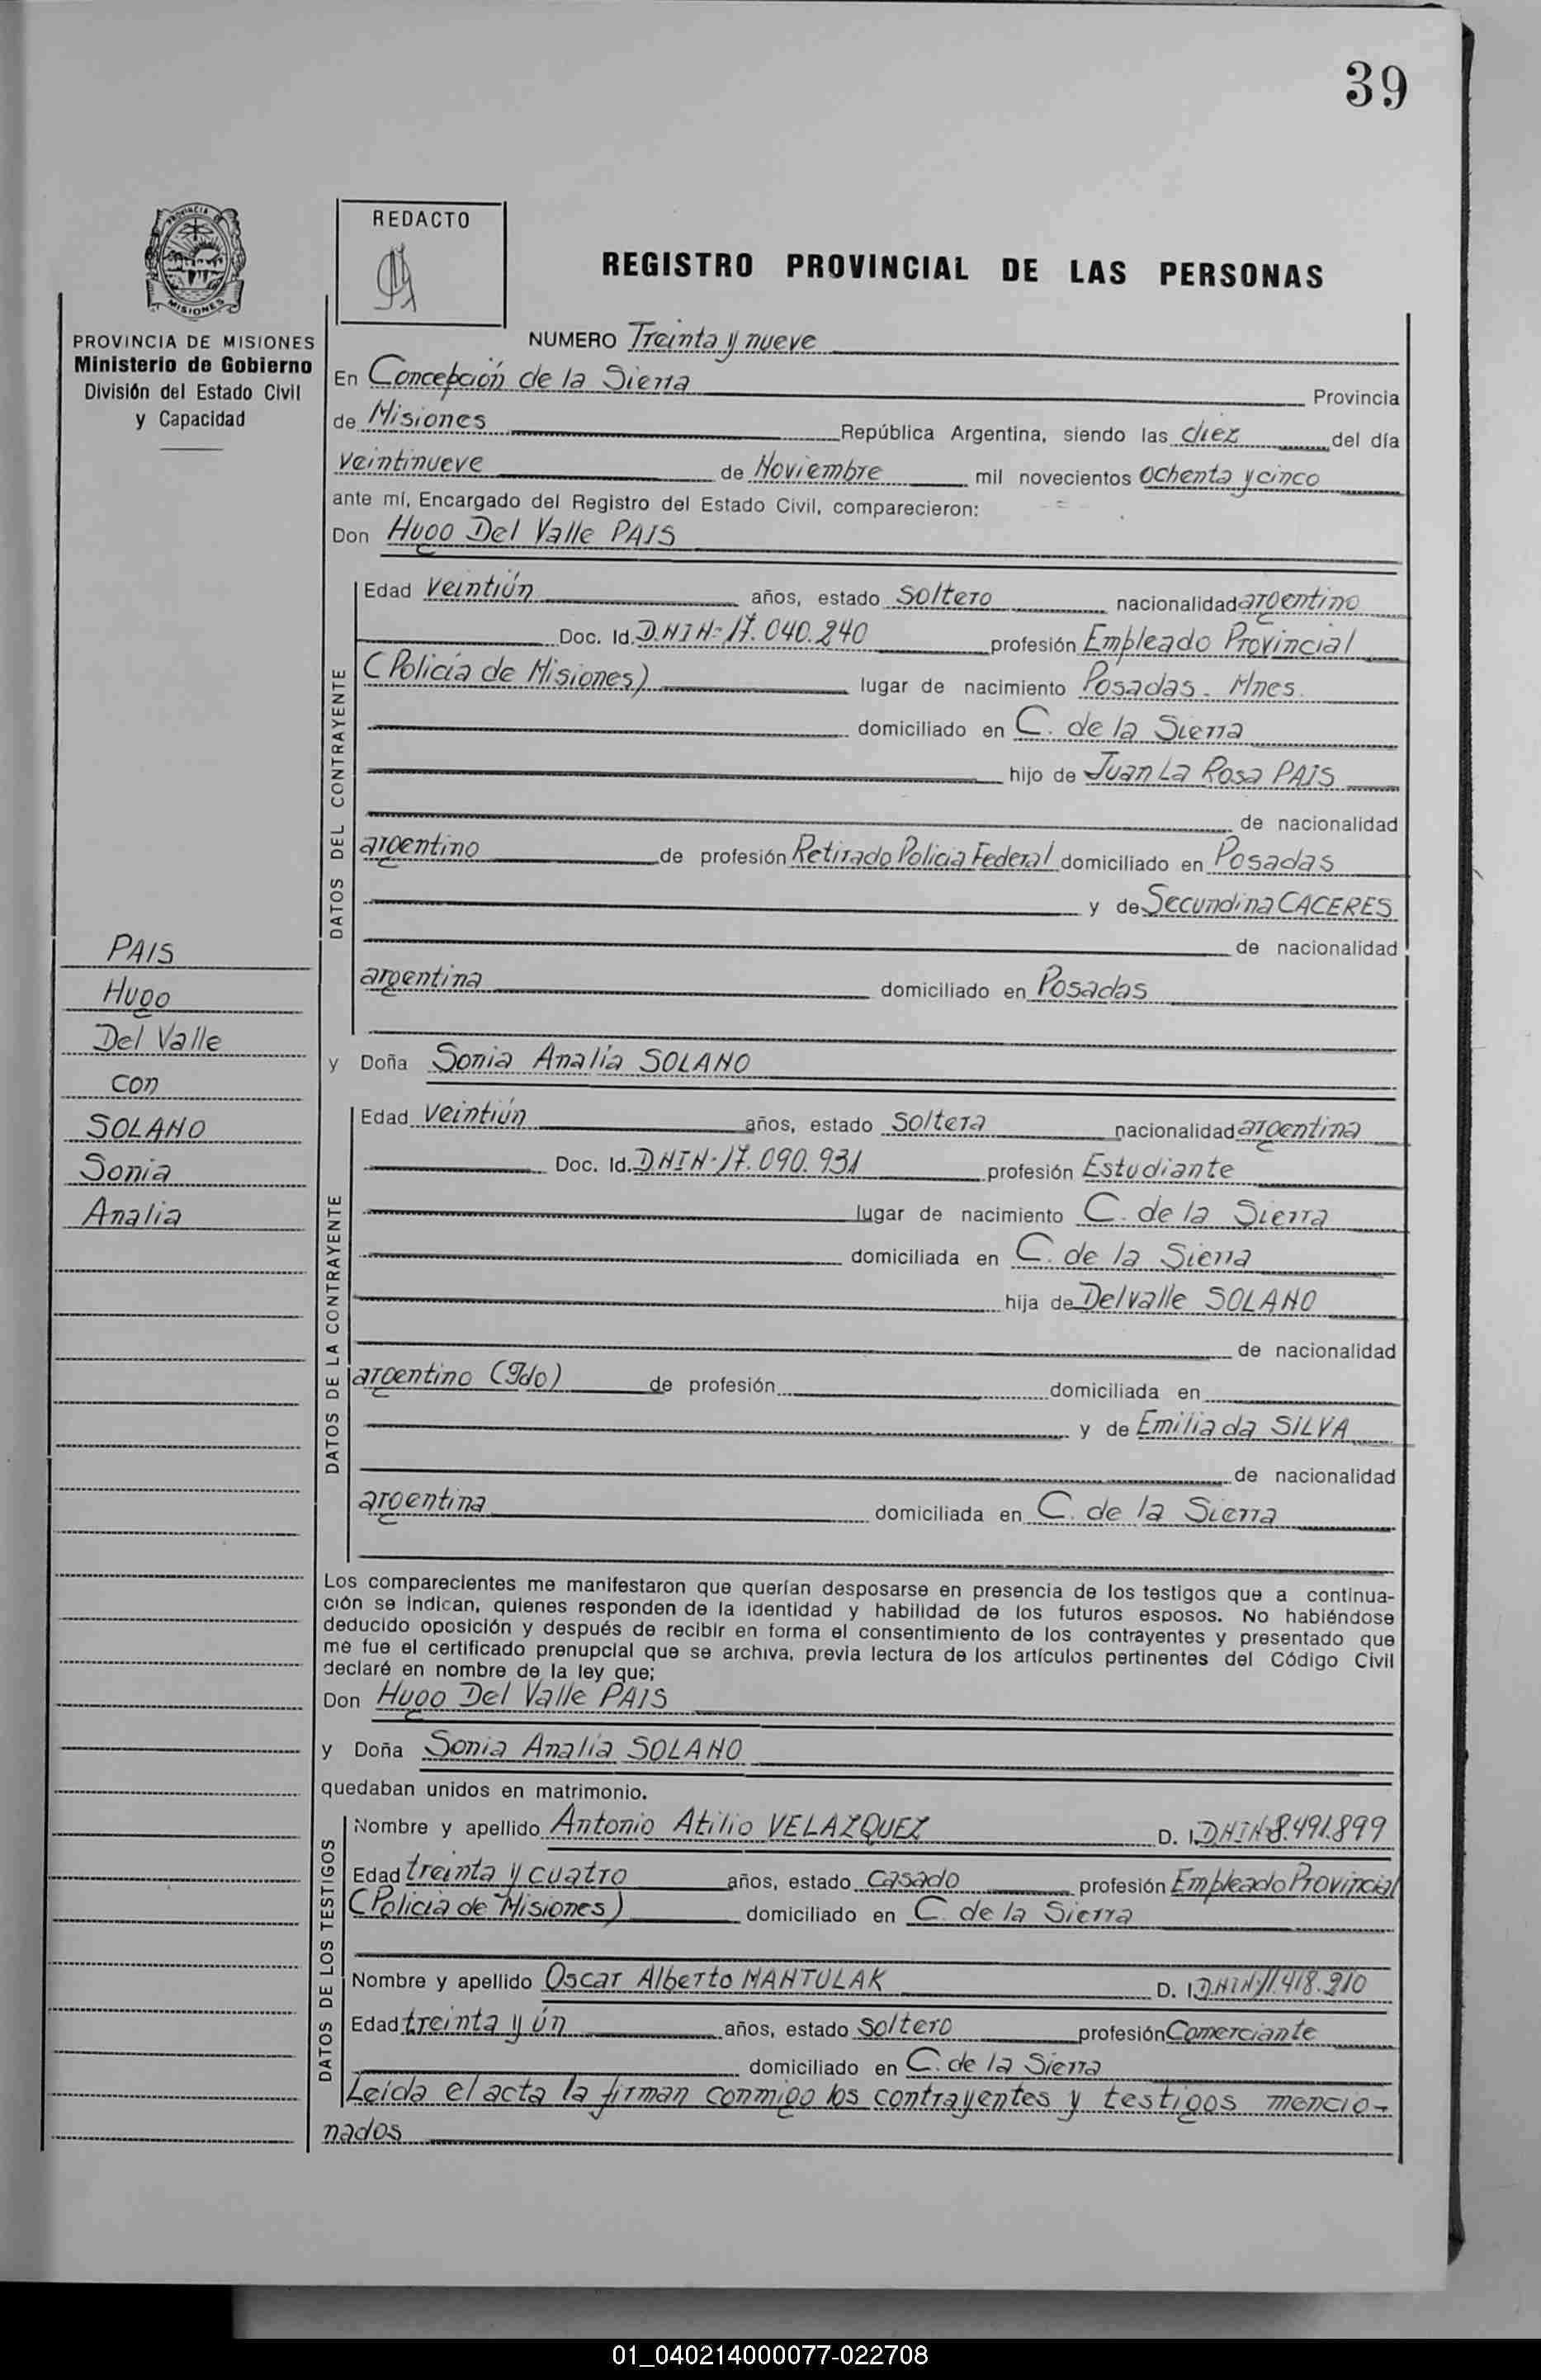 39
PROVINCIA DE
MISIONES
REDACTO
REGISTRO PROVINCIAL DE LAS PERSONAS
PROVINCIA DE MISIONES
Ministerio de Gobierno
División del Estado Civil
y Capacidad
NUMERO Treinta y nueve
En Concepción de la Sierra Provincia
de Misiones República Argentina, siendo las diez del día
veintinueve de Noviembre mil novecientos ochenta y cinco
ante mí, Encargado del Registro del Estado Civil, comparecieron:
Don Hugo Del Valle PAIS
DATOS DEL CONTRAYENTE
Edad veintiún años, estado soltero nacionalidad argentino
Doc. Id. D.N I N: 17.040.240 profesión Empleado Provincial
(Policía de Misiones) lugar de nacimiento Posadas - Mnes.
domiciliado en C. de la Sierra
hijo de Juan La Rosa PAIS
de nacionalidad
argentino de profesión Retirado Policia Federal domiciliado en Posadas
y de Secundina CACERES
de nacionalidad
argentina domiciliado en Posadas
y Doña Sonia Analía SOLANO
DATOS DE LA CONTRAYENTE
Edad veintiún años, estado soltera nacionalidad argentina
Doc. Id. DNIN-17.090.931 profesión Estudiante
lugar de nacimiento C. de la Sierra
domiciliada en C. de la Sierra
hija de Delvalle SOLANO
de nacionalidad
argentino (Fdo) de profesión domiciliada en
y de Emilia da SILVA
de nacionalidad
argentina domiciliada en C. de la Sierra
PAIS
Hugo
Del Valle
con
SOLANO
Sonia
Analia
Los comparecientes me manifestaron que querían desposarse en presencia de los testigos que a continua-
ción se indican, quienes responden de la identidad y habilidad de los futuros esposos. No habiéndose
deducido oposición y después de recibir en forma el consentimiento de los contrayentes y presentado que
me fue el certificado prenupcial que se archiva, previa lectura de los artículos pertinentes del Código Civil
declaré en nombre de la ley que;
Don Hugo Del Valle PAIS
y Doña Sonia Analia SOLANO
quedaban unidos en matrimonio.
DATOS DE LOS TESTIGOS
Nombre y apellido Antonio Atilio VELAZQUEZ D. I. DNIN 8.491.899
Edad treinta y cuatro años, estado casado profesión Empleado Provincial
(Policia de Misiones) domiciliado en C. de la Sierra
Nombre y apellido Oscar Alberto MANTULAK D. I. DNIN: 11.418.210
Edad treinta y ún años, estado soltero profesión Comerciante
domiciliado en C. de la Sierra
Leída el acta la firman conmigo los contrayentes y testigos mencio-
nados
01_040214000077-022708